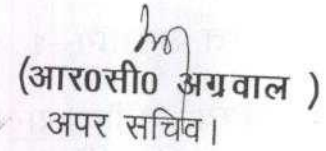 (आर0सी0 अग्रवाल )
अपर सचिव।